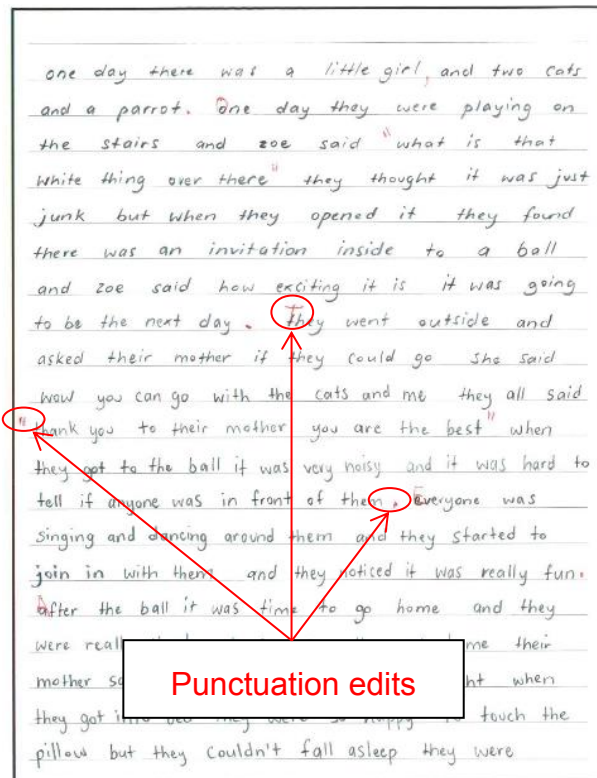 one day there was a little girl, and two cats
and a parrot. One day they were playing on
the stairs and zoe said "what is that
white thing over there" they thought it was just
junk but when they opened it they found
there was an invitation inside to a ball
and zoe said how exciting it is it was going
to be the next day. They went outside and
asked their mother if they could go she said
wow you can go with the cats and me they all said
"thank you to their mother you are the best" when
they got to the ball it was very noisy and it was hard to
tell if anyone was in front of them. Everyone was
singing and dancing around them and they started to
join in with them and they noticed it was really fun.
After the ball it was time to go home and they
were their
mother when
Punctuation edits
they got touch the
pillow but they couldn't fall asleep they were